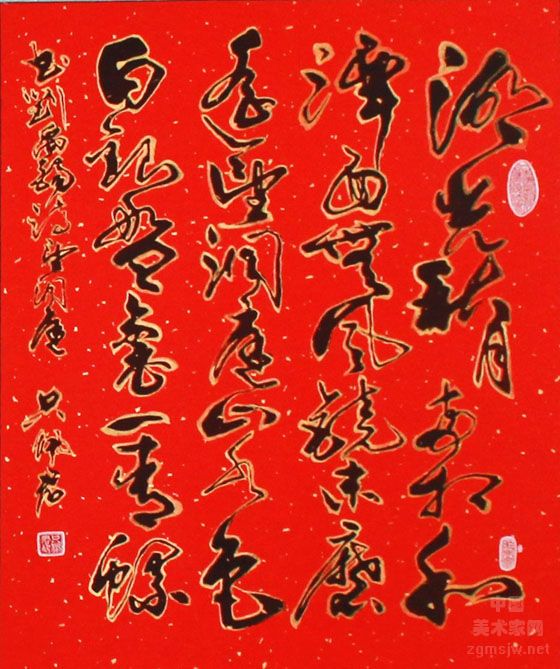 湖光秋月两相和
潭面無風鏡未磨
遥望洞庭山水色
白銀盤裏一青螺
书劉禹錫詩望洞庭
中国
美术家网
zgmsjw.net